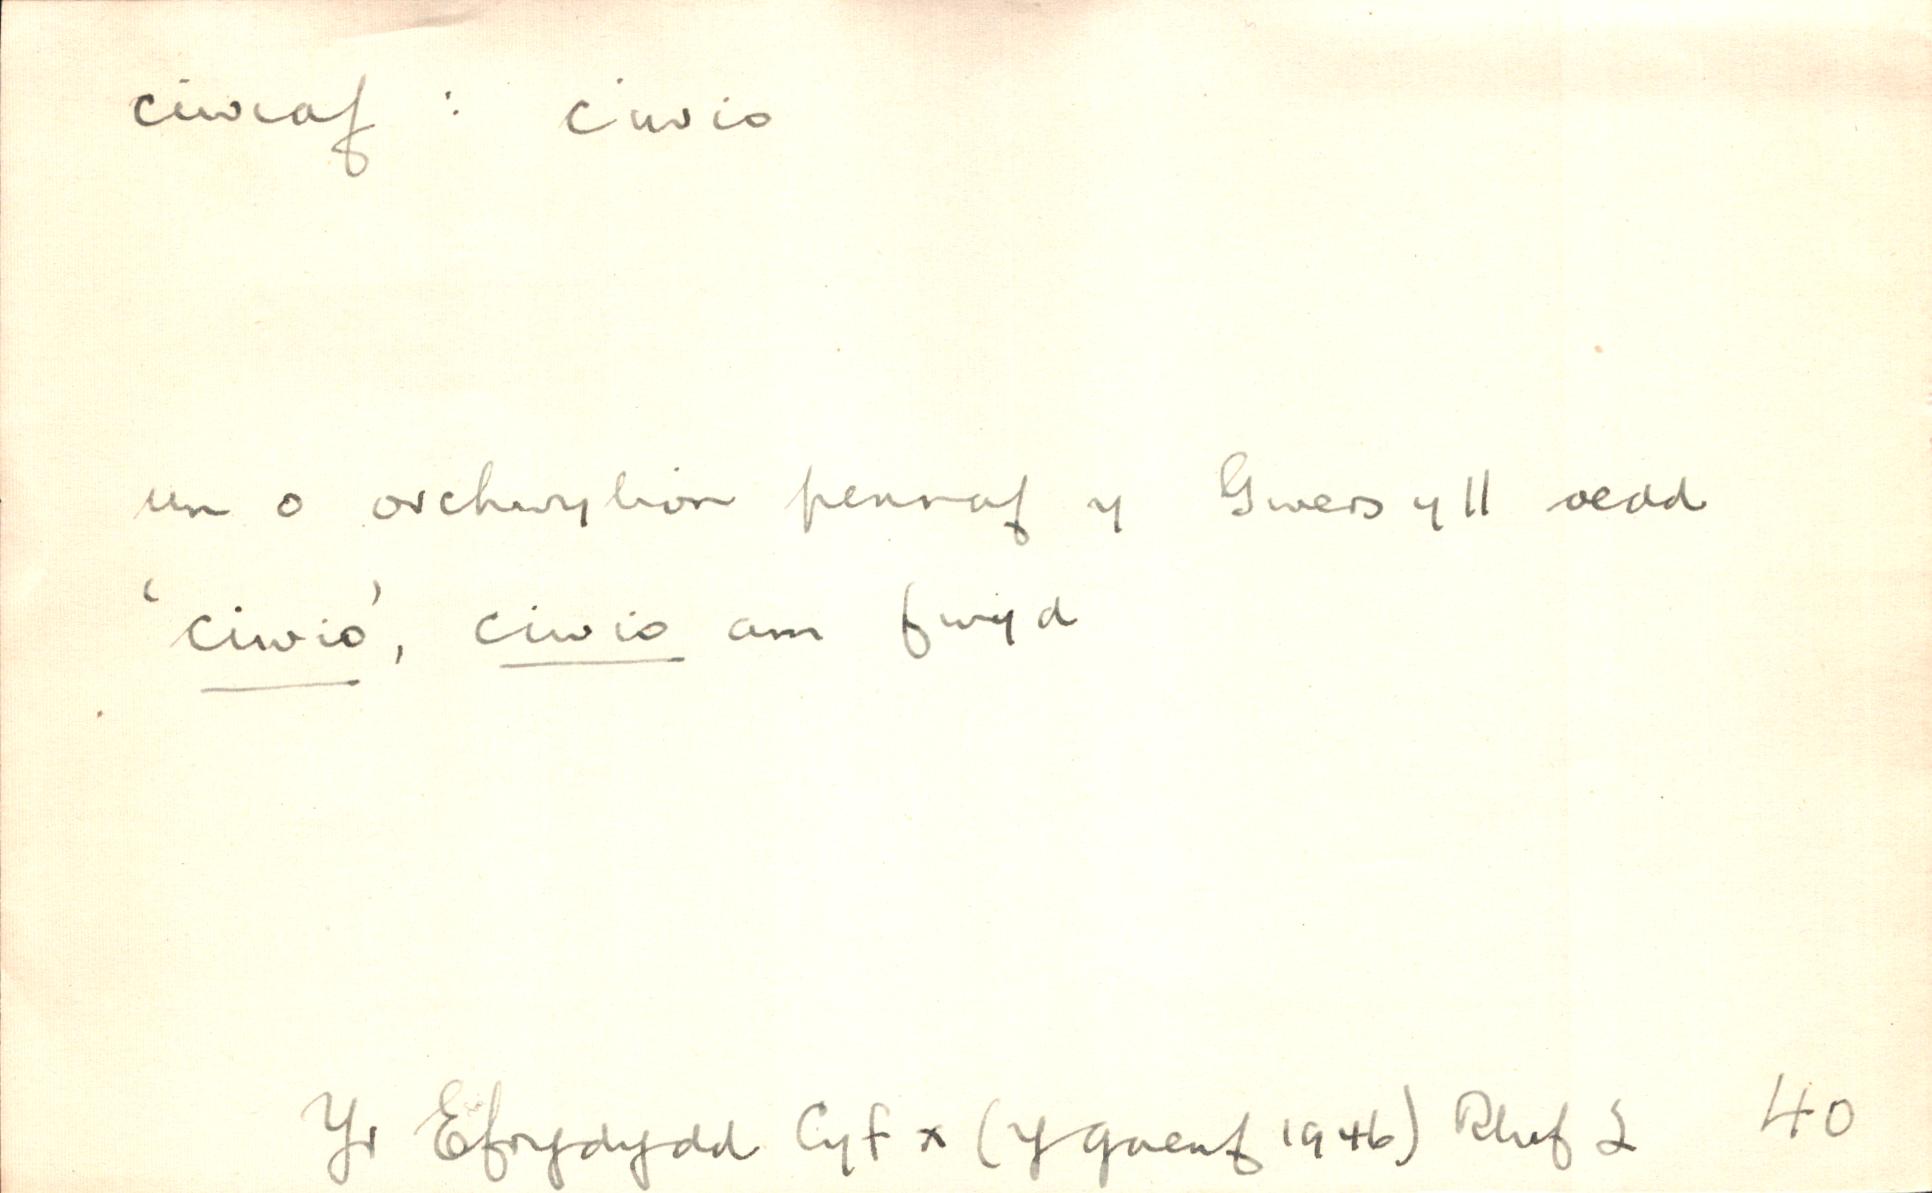 ciwiaf : ciwio
un o orchwylion pennaf y Gwersyll oedd
'ciwio', ciwio am fwyd
Yr Efrydydd Cyf x (y gaeaf 1946) Rhif 2 40